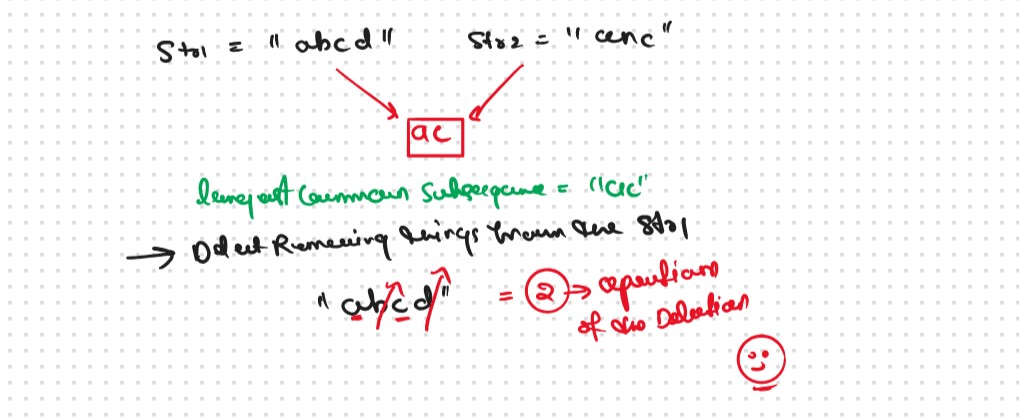 Str1 = "abcd" Str2 = "anc"
ac
longest Common Subsequence = "ac"
→ Delet Remaining things from the Str1
"abcd" = 2 → operations
of the Deletion